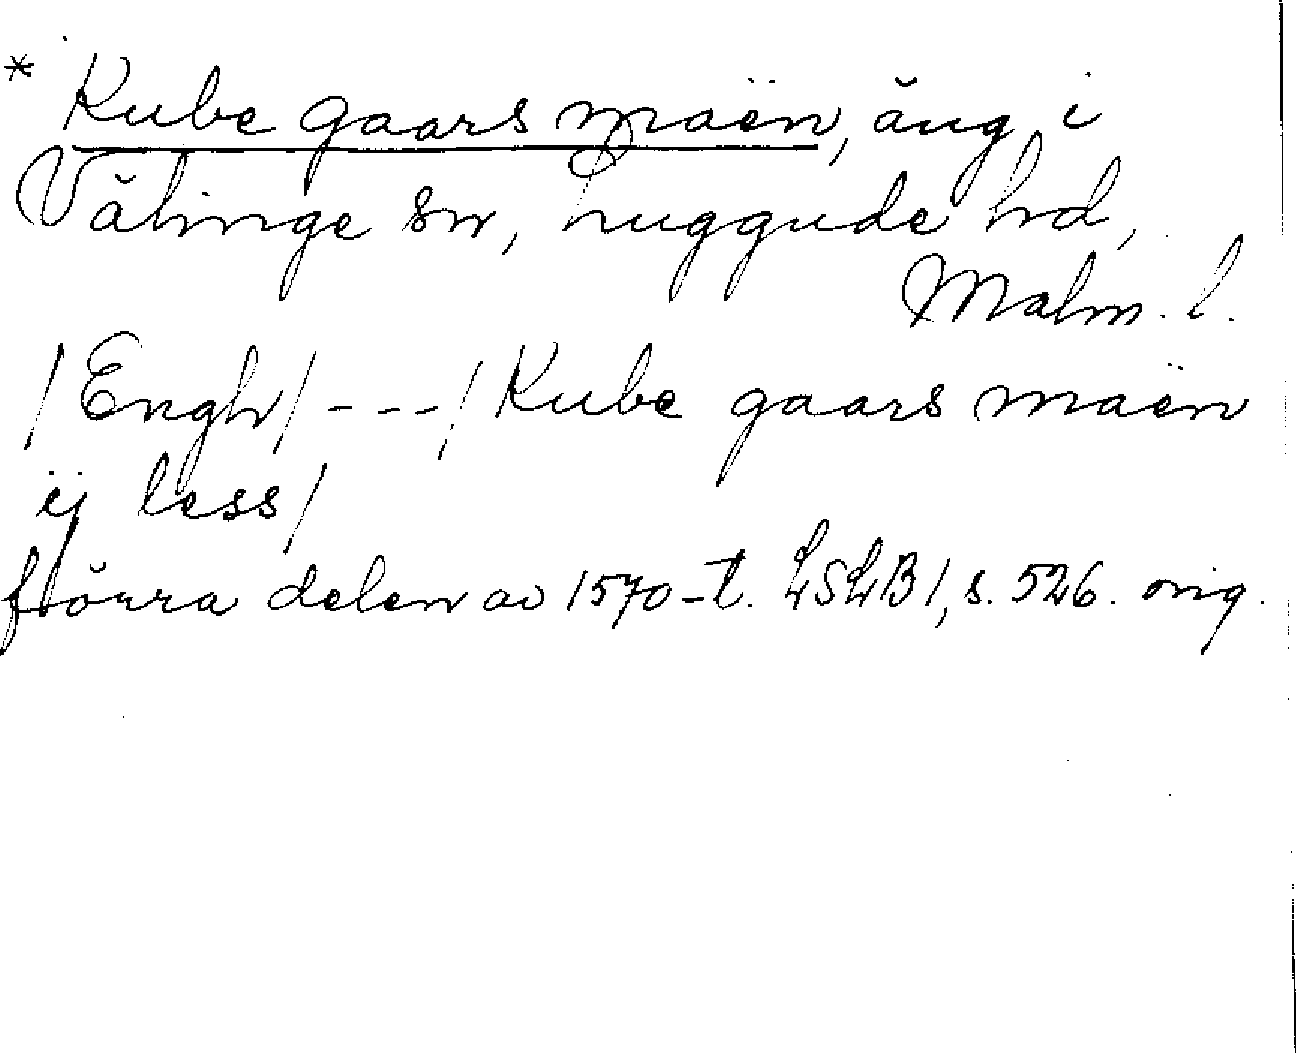 * Kube gaars maën, äng i
Välinge sn, Luggude hd,
Malm. l.
/Engh/ - - - / Kube gaars maën
ij less/
förra delen av 1570-t. LSLB 1, s. 526. orig.